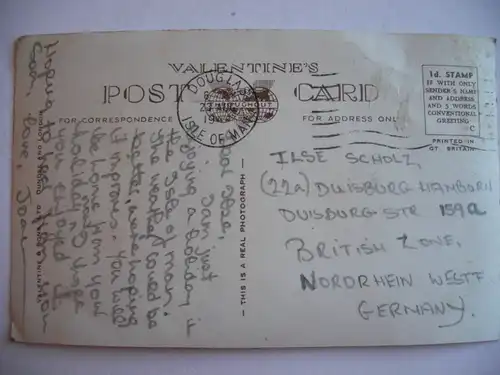 VALENTINE'S
POST CARD
FOR CORRESPONDENCE
FOR ADDRESS ONLY
DOUGLAS
ISLE OF MAN
1d. STAMP
IF WITH ONLY
SENDER'S NAME
AND ADDRESS
AND 5 WORDS
CONVENTIONAL
GREETING
C
PRINTED IN
GT. BRITAIN
— THIS IS A REAL PHOTOGRAPH —
Dear Ilse,
I am just
enjoying a holiday in
the Isle of Man.
The weather could be
better, were hoping
it improves. You will
be home from your
holiday now I hope
you enjoyed it.
Hoping to hear from you
soon, love, Joan
ILSE SCHOLZ,
(22a) DUISBURG HAMBORN
DUISBURG STR 159a
BRITISH ZONE,
NORDRHEIN WESTF
GERMANY.